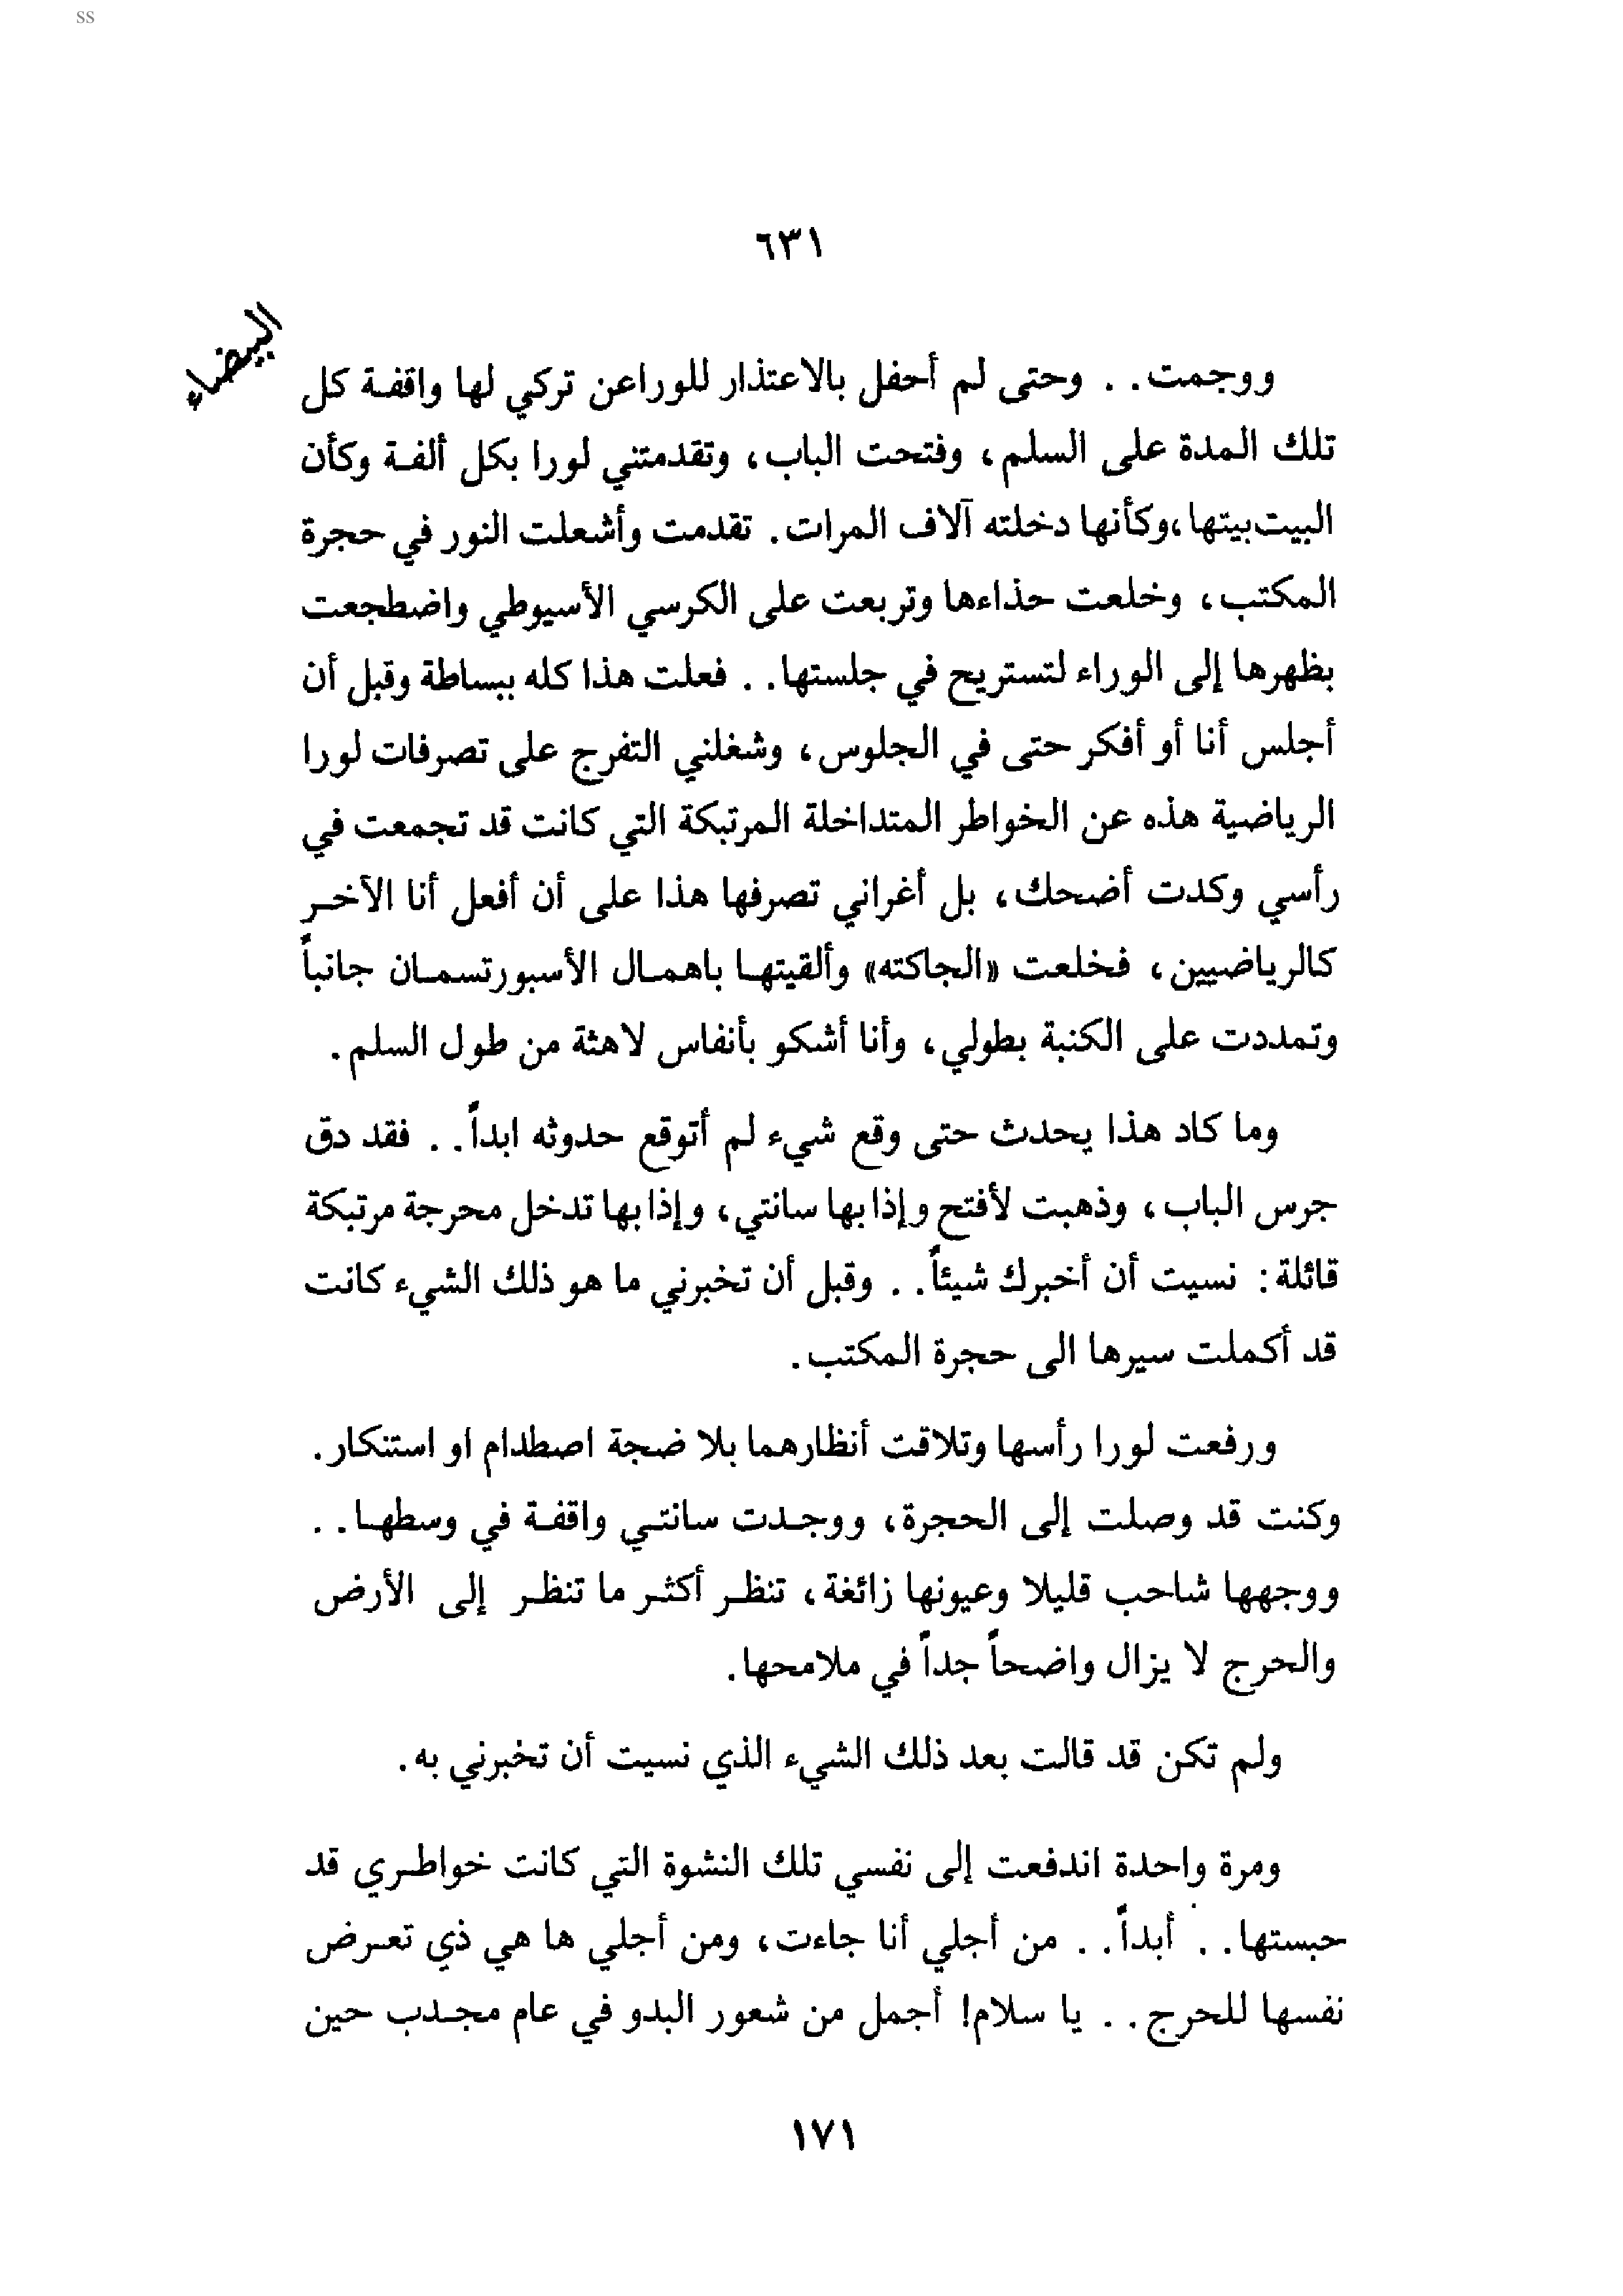 ss
٦٣١
البيضاء
ووجمت. . وحتى لم أحفل بالاعتذار للوراعن تركي لها واقفة كل
تلك المدة على السلم، وفتحت الباب، وتقدمتني لورا بكل ألفة وكأن
البيت بيتها، وكأنها دخلته آلاف المرات. تقدمت وأشعلت النور في حجرة
المكتب، وخلعت حذاءها وتربعت على الكرسي الأسيوطي واضطجعت
بظهرها إلى الوراء لتستريح في جلستها. . فعلت هذا كله ببساطة وقبل أن
أجلس أنا أو أفكر حتى في الجلوس، وشغلني التفرج على تصرفات لورا
الرياضية هذه عن الخواطر المتداخلة المرتبكة التي كانت قد تجمعت في
رأسي وكدت أضحك، بل أغراني تصرفها هذا على أن أفعل أنا الآخر
كالرياضيين، فخلعت «الجاكته» وألقيتها باهمال الأسبورتسمان جانباً
وتمددت على الكنبة بطولي، وأنا أشكو بأنفاس لاهثة من طول السلم.
وما كاد هذا يحدث حتى وقع شيء لم أتوقع حدوثه ابداً. . فقد دق
جرس الباب، وذهبت لأفتح وإذا بها سانتي، وإذا بها تدخل محرجة مرتبكة
قائلة: نسيت أن أخبرك شيئاً. . وقبل أن تخبرني ما هو ذلك الشيء كانت
قد أكملت سيرها الى حجرة المكتب.
ورفعت لورا رأسها وتلاقت أنظارهما بلا ضجة اصطدام او استنكار.
وكنت قد وصلت إلى الحجرة، ووجدت سانتي واقفة في وسطها. .
ووجهها شاحب قليلا وعيونها زائغة، تنظر أكثر ما تنظر إلى الأرض
والحرج لا يزال واضحاً جداً في ملامحها.
ولم تكن قد قالت بعد ذلك الشيء الذي نسيت أن تخبرني به.
ومرة واحدة اندفعت إلى نفسي تلك النشوة التي كانت خواطري قد
حبستها. . أبداً. . من أجلي أنا جاءت، ومن أجلي ها هي ذي تعرض
نفسها للحرج. . يا سلام! أجمل من شعور البدو في عام مجدب حين
١٧١